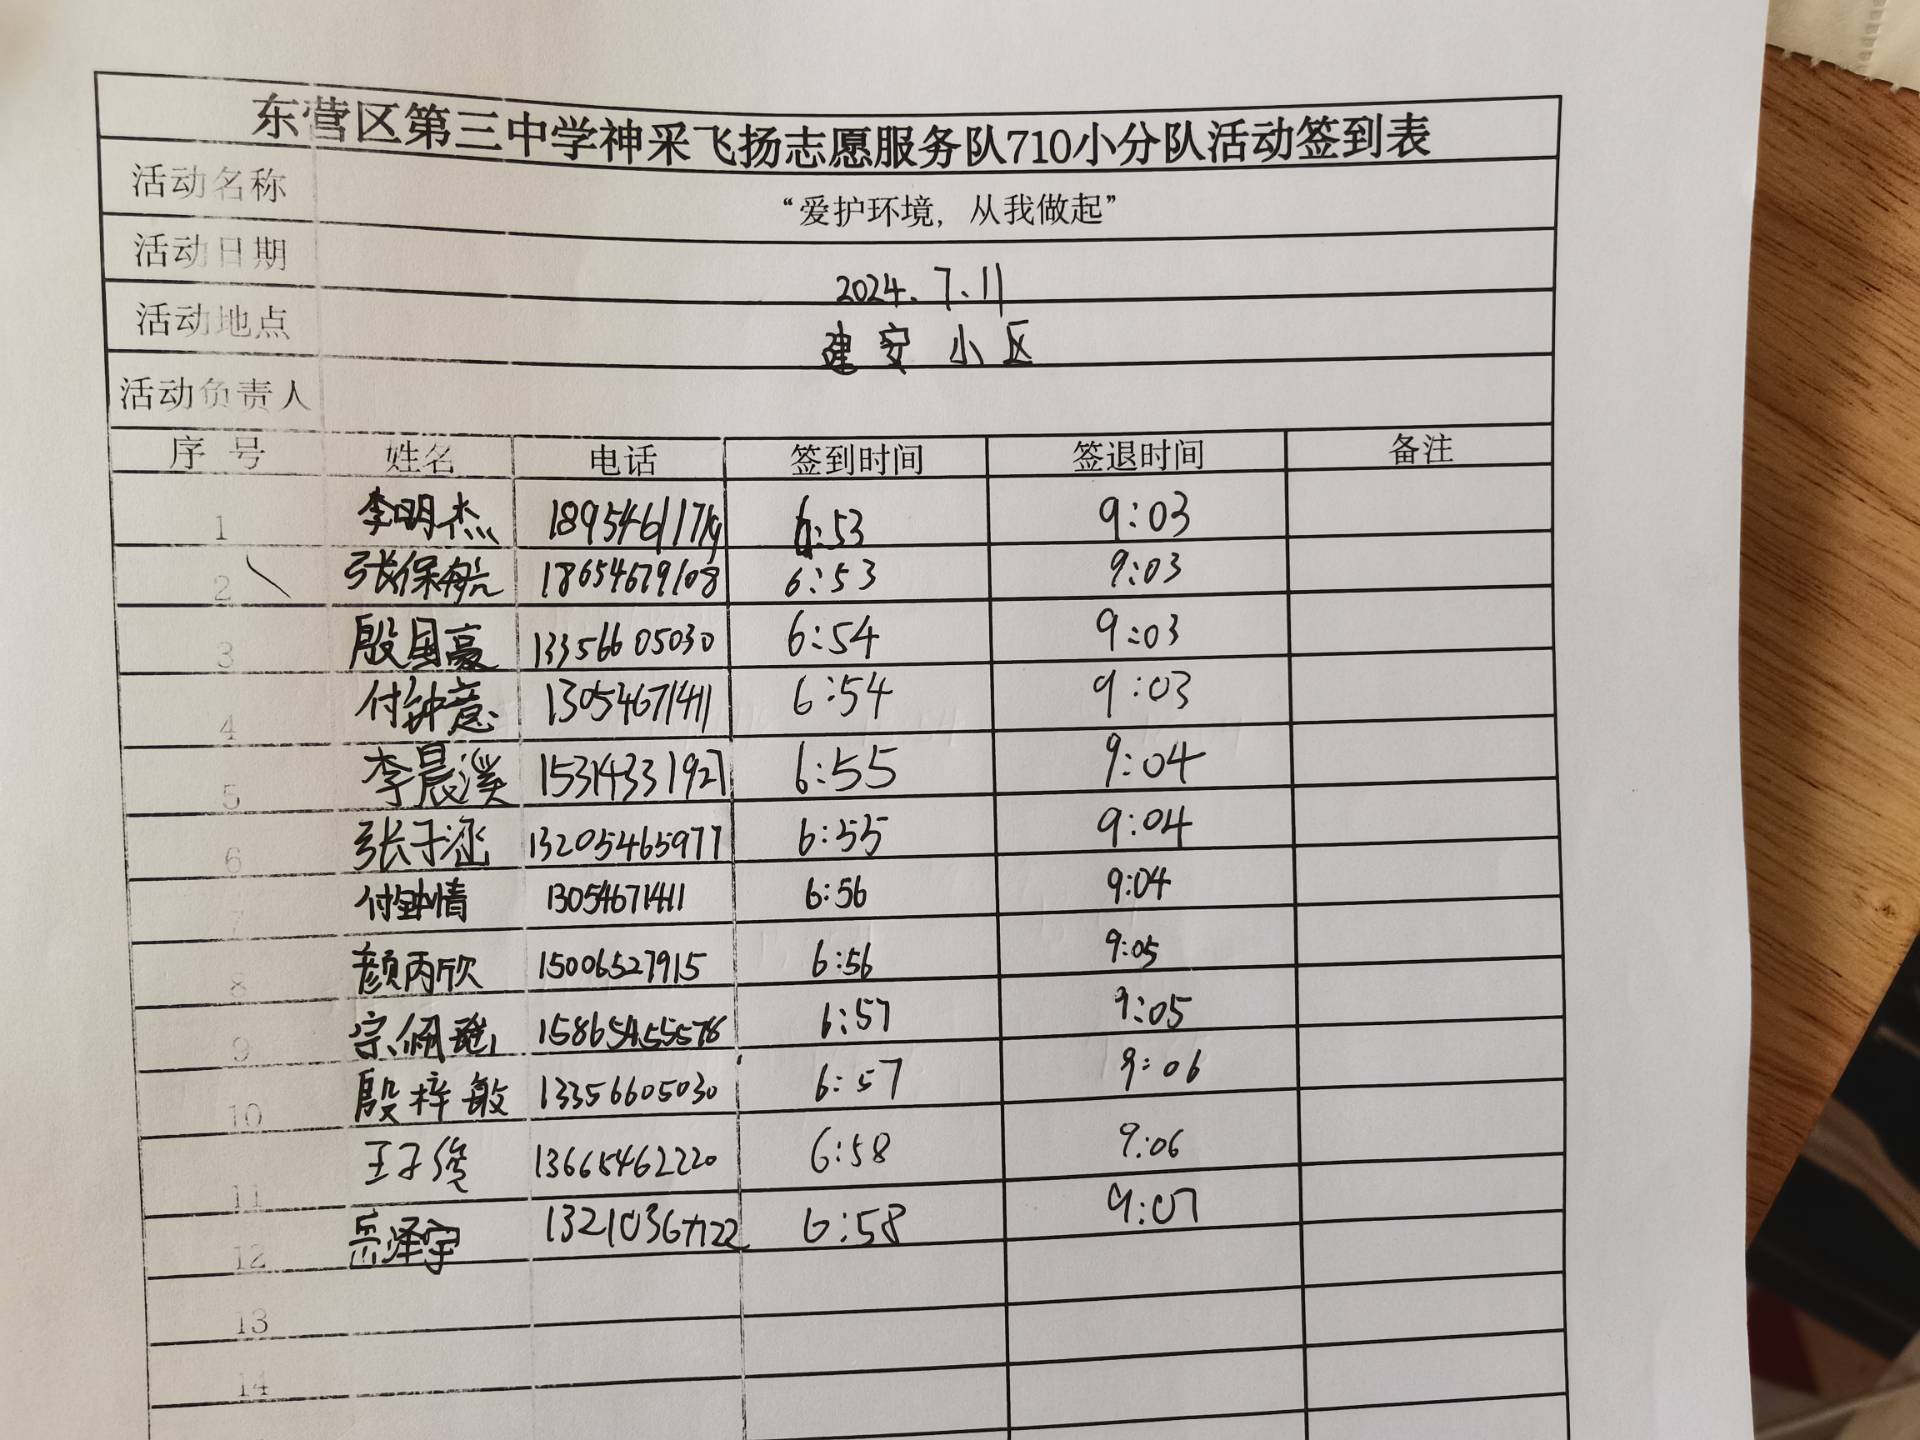 东营区第三中学神采飞扬志愿服务队710小分队活动签到表
活动名称 “爱护环境，从我做起”
活动日期 2024.7.11
活动地点 建安小区
活动负责人
序号 姓名 电话 签到时间 签退时间 备注
1 李明杰 6:53 9:03
2 张保航 18654679108 6:53 9:03
3 殷国豪 13356605030 6:54 9:03
4 付钟意 13054671411 6:54 9:03
5 李晨溪 15314331927 6:55 9:04
6 张子涵 13205465977 6:55 9:04
7 付钟情 13054671411 6:56 9:04
8 颜丙欣 15006527915 6:56 9:05
9 宗佩 15865455578 6:57 9:05
10 殷梓敏 13356605030 6:57 9:06
11 王子俊 13665462220 6:58 9:06
12 岳泽宇 6:58 9:07
13
14